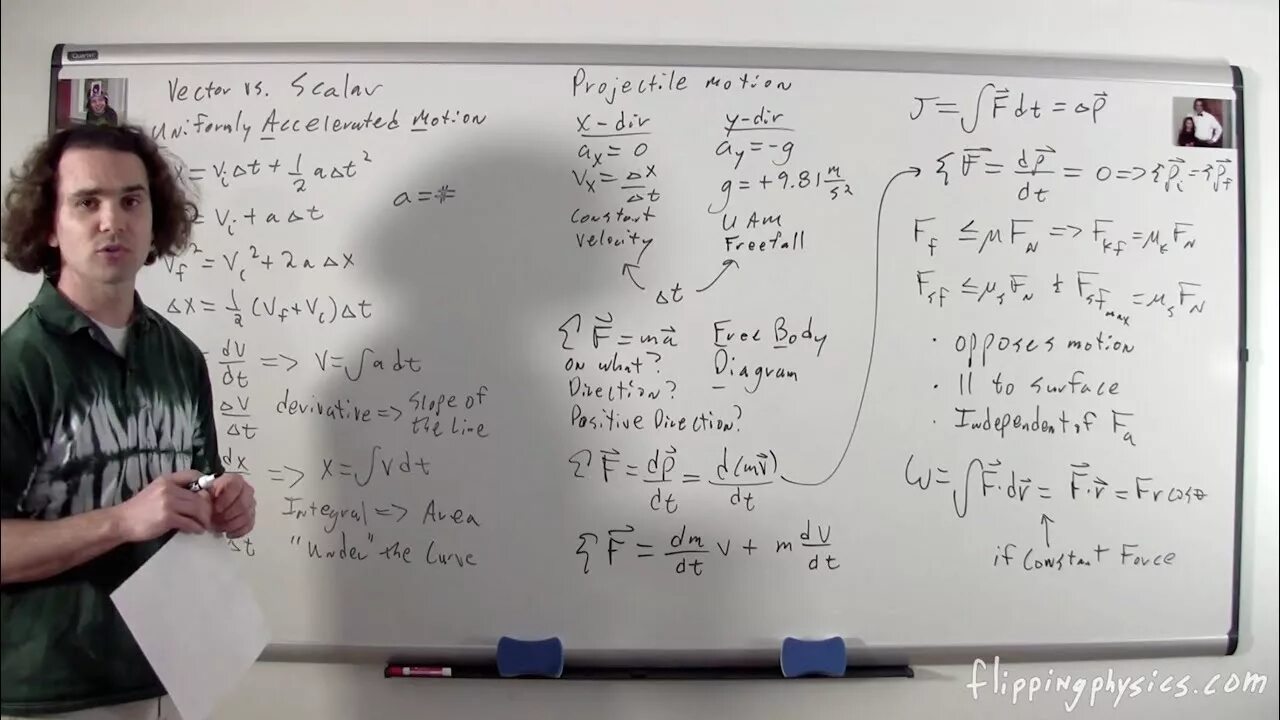 Quartet
Vector vs. Scalar
Uniformly Accelerated Motion
x = Vᵢ Δt + 1/2 a Δt²
a = #
= Vᵢ + a Δt
V_f² = Vᵢ² + 2a Δx
Δx = 1/2 (V_f + Vᵢ) Δt
= dV/dt => V = ∫ a dt
ΔV/Δt
derivative => slope of
the line
dx
=> x = ∫ v dt
Integral => Area
"Under" the Curve
Δt
Projectile motion
x-dir
aₓ = 0
Vₓ = Δx/Δt
Constant
Velocity
y-dir
a_y = -g
g = +9.81 m/s²
UAM
Freefall
Δt
Σ F⃗ = ma⃗
on what?
Direction?
Positive Direction?
Free Body
Diagram
Σ F⃗ = dp⃗/dt = d(mv⃗)/dt
Σ F⃗ = dm/dt v + m dV/dt
J = ∫ F⃗ dt = Δp⃗
Σ F⃗ = dp⃗/dt = 0 => Σp⃗ᵢ = Σp⃗_f
F_f ≤ μ F_N => F_kf = μ_k F_N
F_sf ≤ μ_s F_N & F_sf_max = μ_s F_N
· opposes motion
· || to surface
· Independent of F_a
W = ∫ F⃗ · dr⃗ = F⃗ · r⃗ = Fr cosθ
if Constant Force
flippingphysics.com